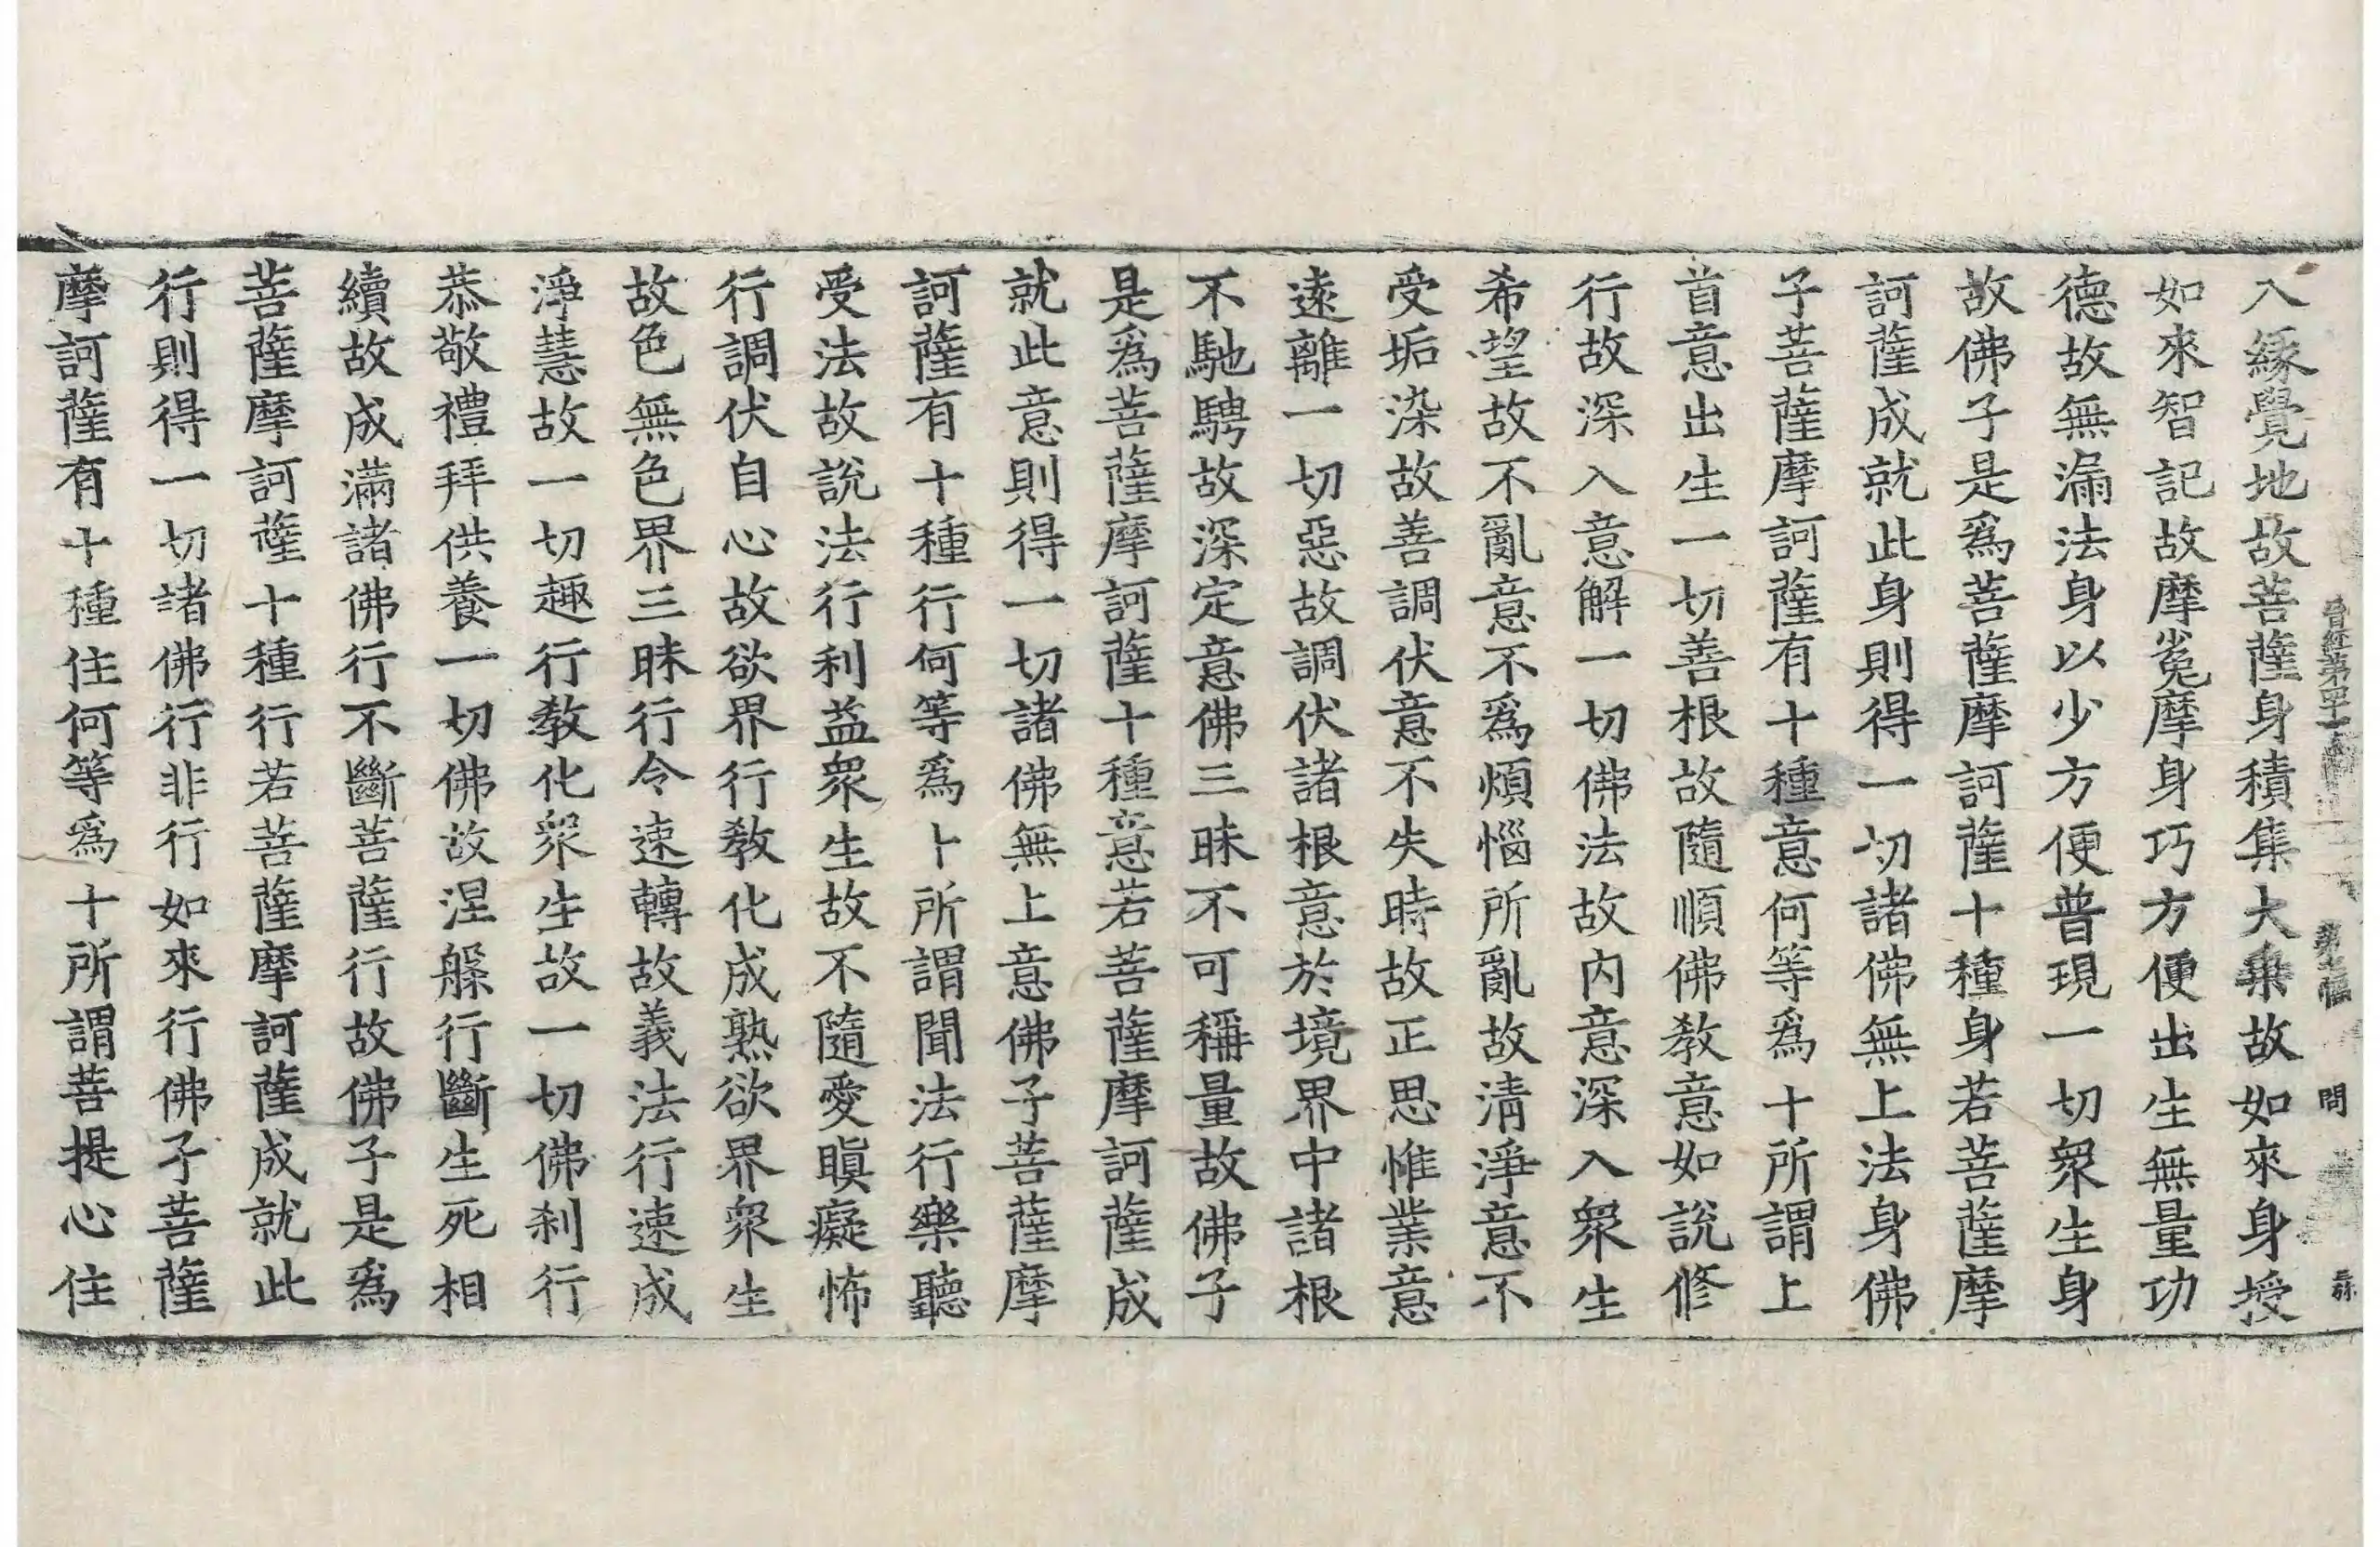 晋經第
問
入緣覺地故菩薩身積集大乗故如來身授
如來智記故摩㝹摩身巧方便出生無量功
德故無漏法身以少方便普現一切衆生身
故佛子是爲菩薩摩訶薩十種身若菩薩摩
訶薩成就此身則得一切諸佛無上法身佛
子菩薩摩訶薩有十種意何等爲十所謂上
首意出生一切善根故隨順佛教意如說修
行故深入意解一切佛法故内意深入衆生
希望故不亂意不爲煩惱所亂故淸淨意不
受垢染故善調伏意不失時故正思惟業意
遠離一切惡故調伏諸根意於境界中諸根
不馳騁故深定意佛三昧不可稱量故佛子
是爲菩薩摩訶薩十種意若菩薩摩訶薩成
就此意則得一切諸佛無上意佛子菩薩摩
訶薩有十種行何等爲十所謂聞法行樂聽
受法故說法行利益衆生故不隨愛瞋癡怖
行調伏自心故欲界行教化成熟欲界衆生
故色無色界三昧行令速轉故義法行速成
淨慧故一切趣行教化衆生故一切佛刹行
恭敬禮拜供養一切佛故涅槃行斷生死相
續故成滿諸佛行不斷菩薩行故佛子是爲
菩薩摩訶薩十種行若菩薩摩訶薩成就此
行則得一切諸佛行非行如來行佛子菩薩
摩訶薩有十種住何等爲十所謂菩提心住